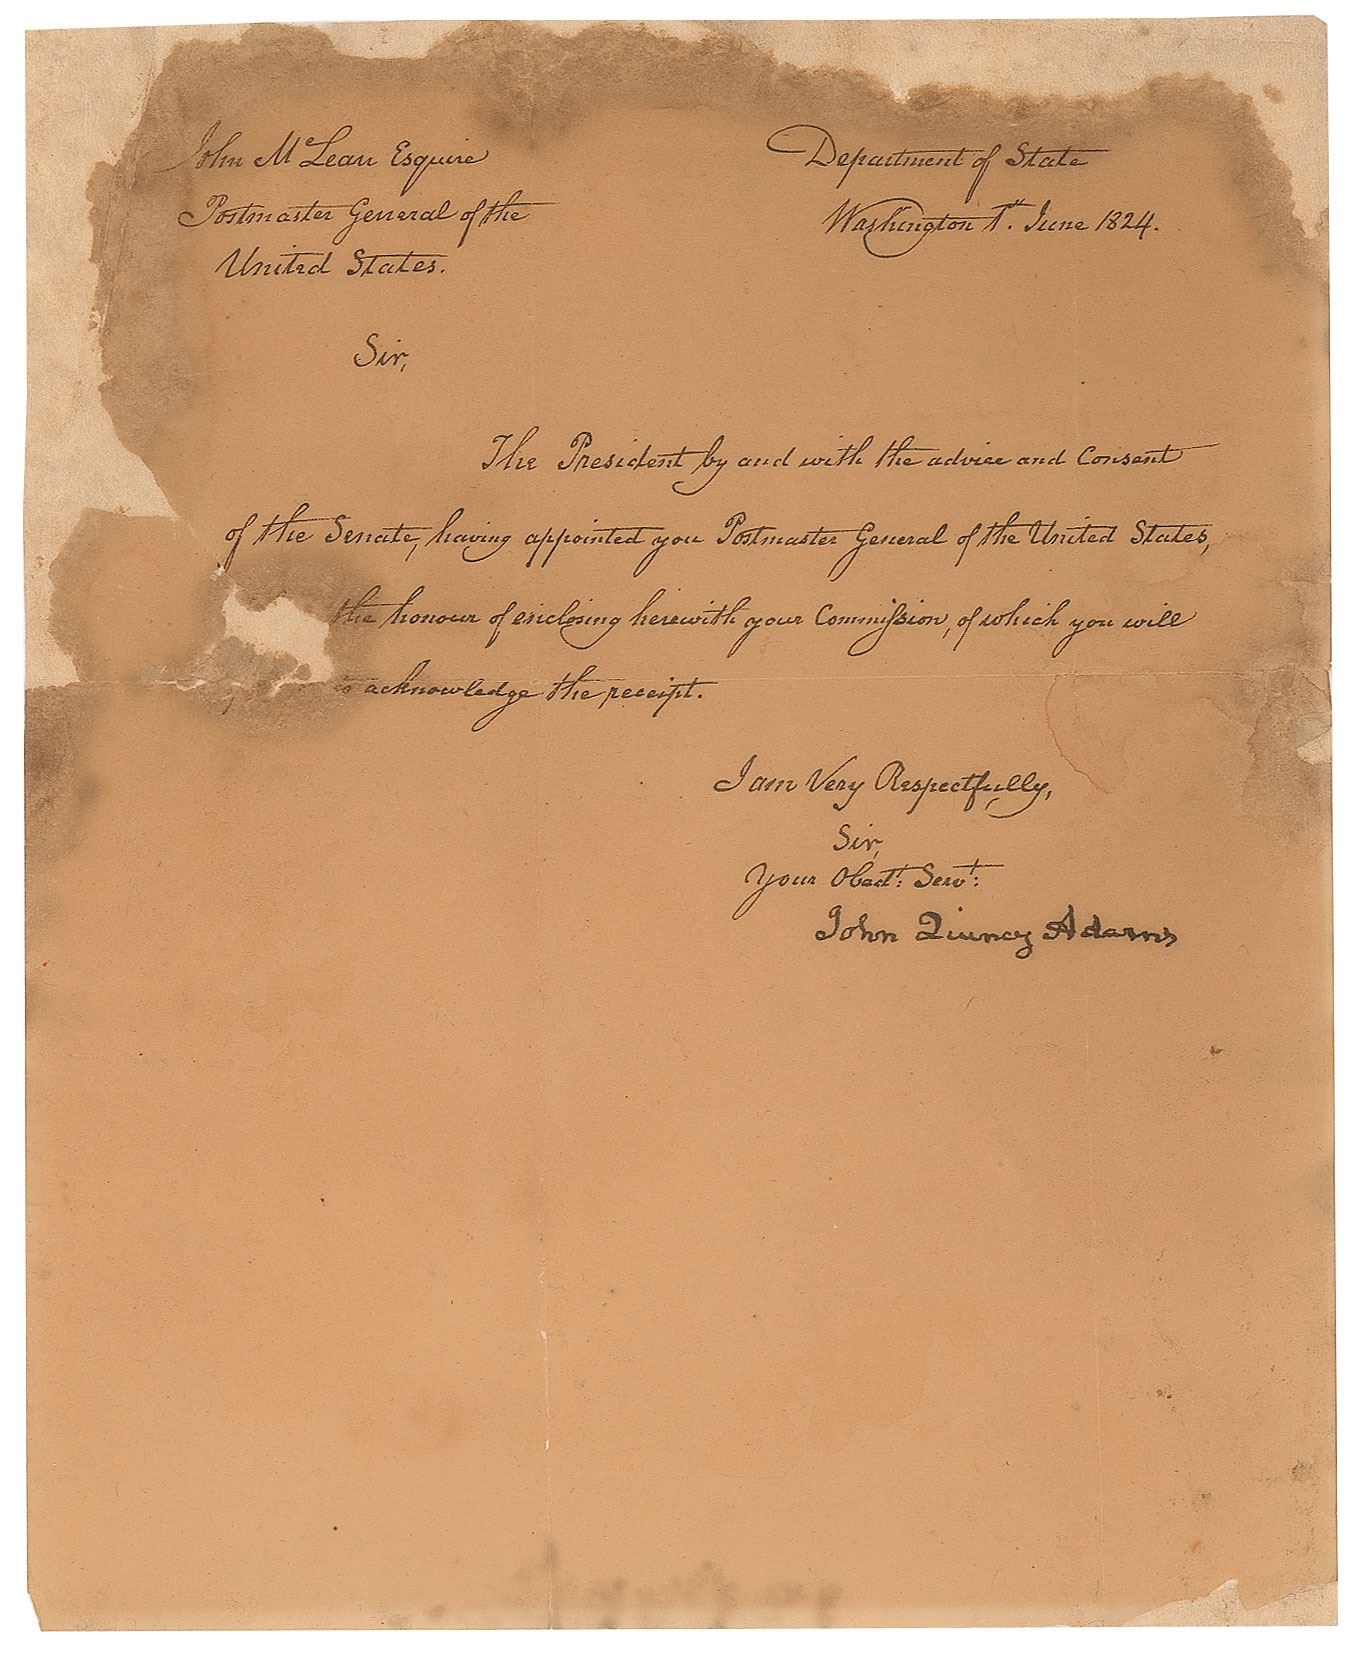 John McLean Esquire
Postmaster General of the
United States.
Department of State
Washington 1st. June 1824.
Sir,
The President by and with the advice and Consent
of the Senate, having appointed you Postmaster General of the United States,
the honour of enclosing herewith your Commission, of which you will
to acknowledge the receipt.
I am Very Respectfully,
Sir,
Your Obedt: Servt:
John Quincy Adams